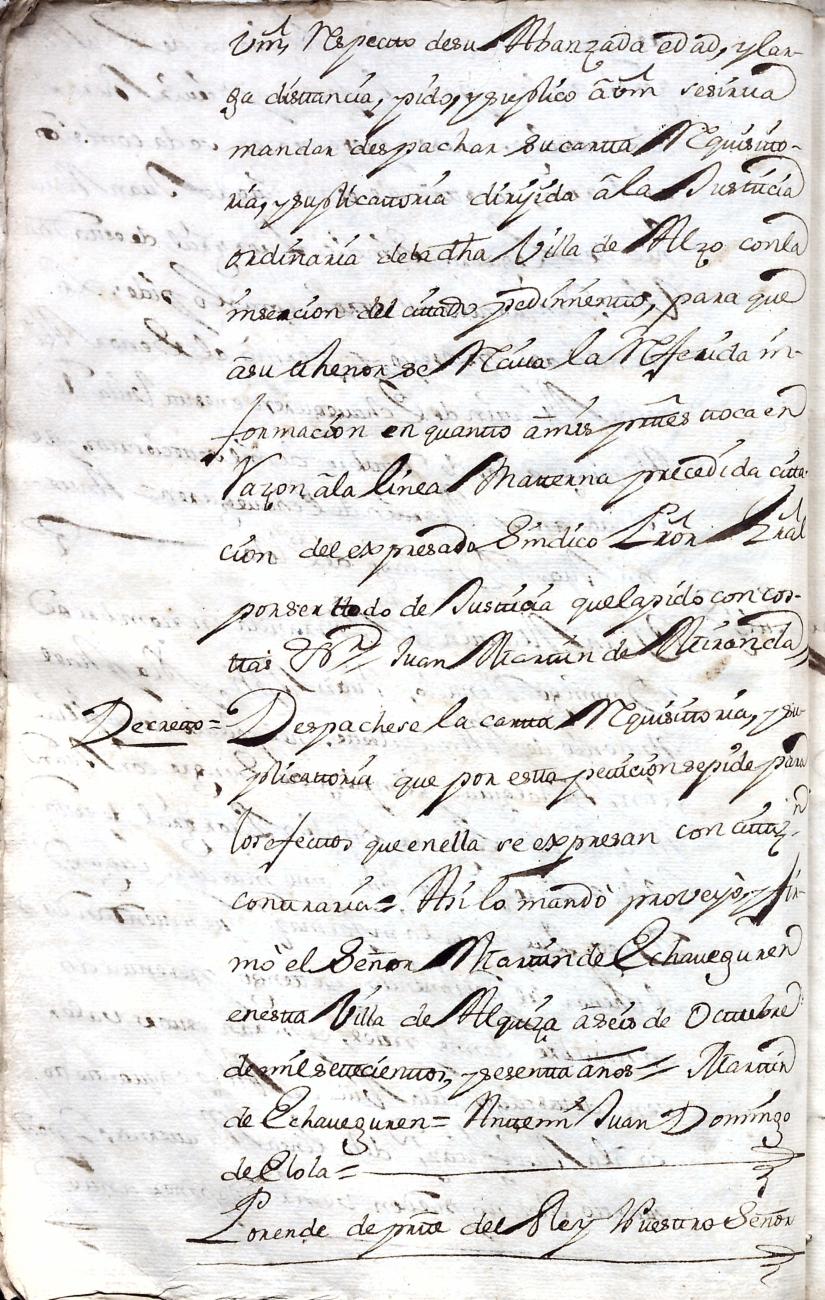 Vmd, Respecto desu Abanzada edad, y lar-
ga distancia, pido, y suplico â vmd sesirva
mandar despachar su cartta Requisitto-
ria, y suplicattoria dirijida â la Justicia
ordinaria dela dha Villa de Alzo conla
insercion del cittado pedimientto, para que
âsu thenor se Reciva la Referida in-
formacion en quantto amis prttes ttoca en
Razon âla linea Matterna precedida citta-
cion del expresado Sindico Pror Gral
por ser ttodo de Justicia que la pido con cos-
ttas Juan Martin de Miranda,
Decretto = Despachese la cartta Requisittoria, y su-
plicattoria que por estta petticion sepide para
los efecttos que enella se expresan con cittazn
conttraria = Asi lo mandò proveyò, y fir-
mó el Señor Marttin de Echaveguren
enestta Villa de Alquiza a seis de Octtubre
de mil settecienttos, y sesentta años = Marttin
de Echaveguren = Anttemi Juan Domingo
de Elola =
Porende de prtte del Rey Nuesttro Señor